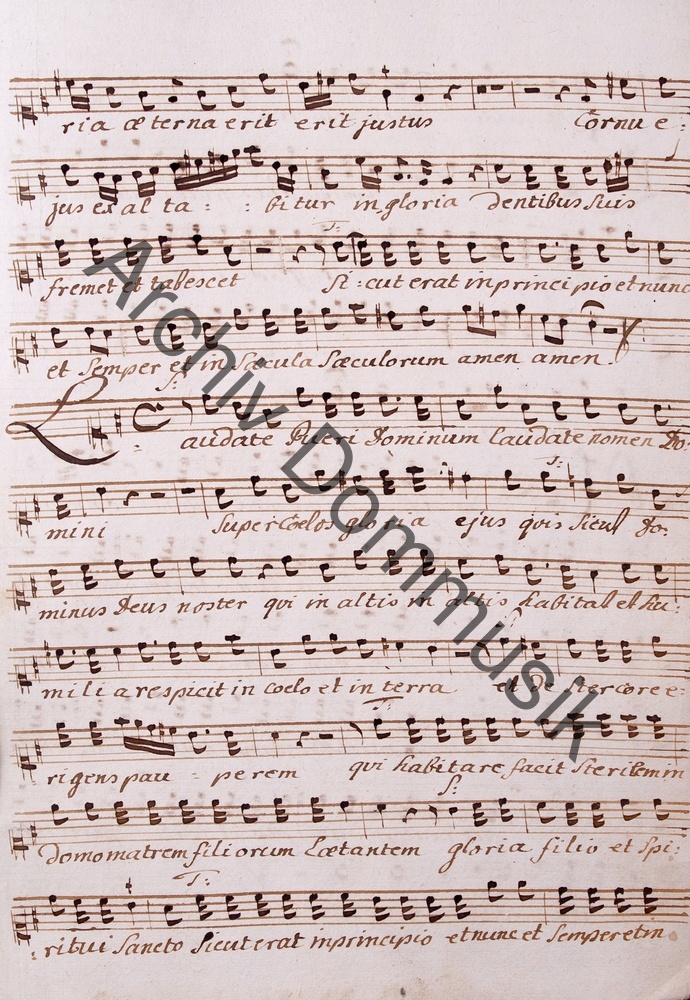 ria æ terna erit erit justus Cornu e :
jus ex al ta : : bitur in gloria Dentibus suis
T:
fremet et tabescet Si : cut erat in principio et nunc
et Semper et in Sæcula Sæculorum amen amen.
S:
Laudate Pueri Dominum laudate nomen Do :
S:
mini Super Cœlos gloria ejus quis Sicut Do :
minus Deus noster qui in altis in altis habitat et hu :
mili a respicit in coelo et in terra et de Stercore e :
T:
rigens pau - perem qui habitare facit Sterilem in
S:
Domo matrem filiorum Lætantem gloria filio et Spi :
T:
: ritui Sancto Sicut erat in principio et nunc et Semper et in
Archiv Dommusik